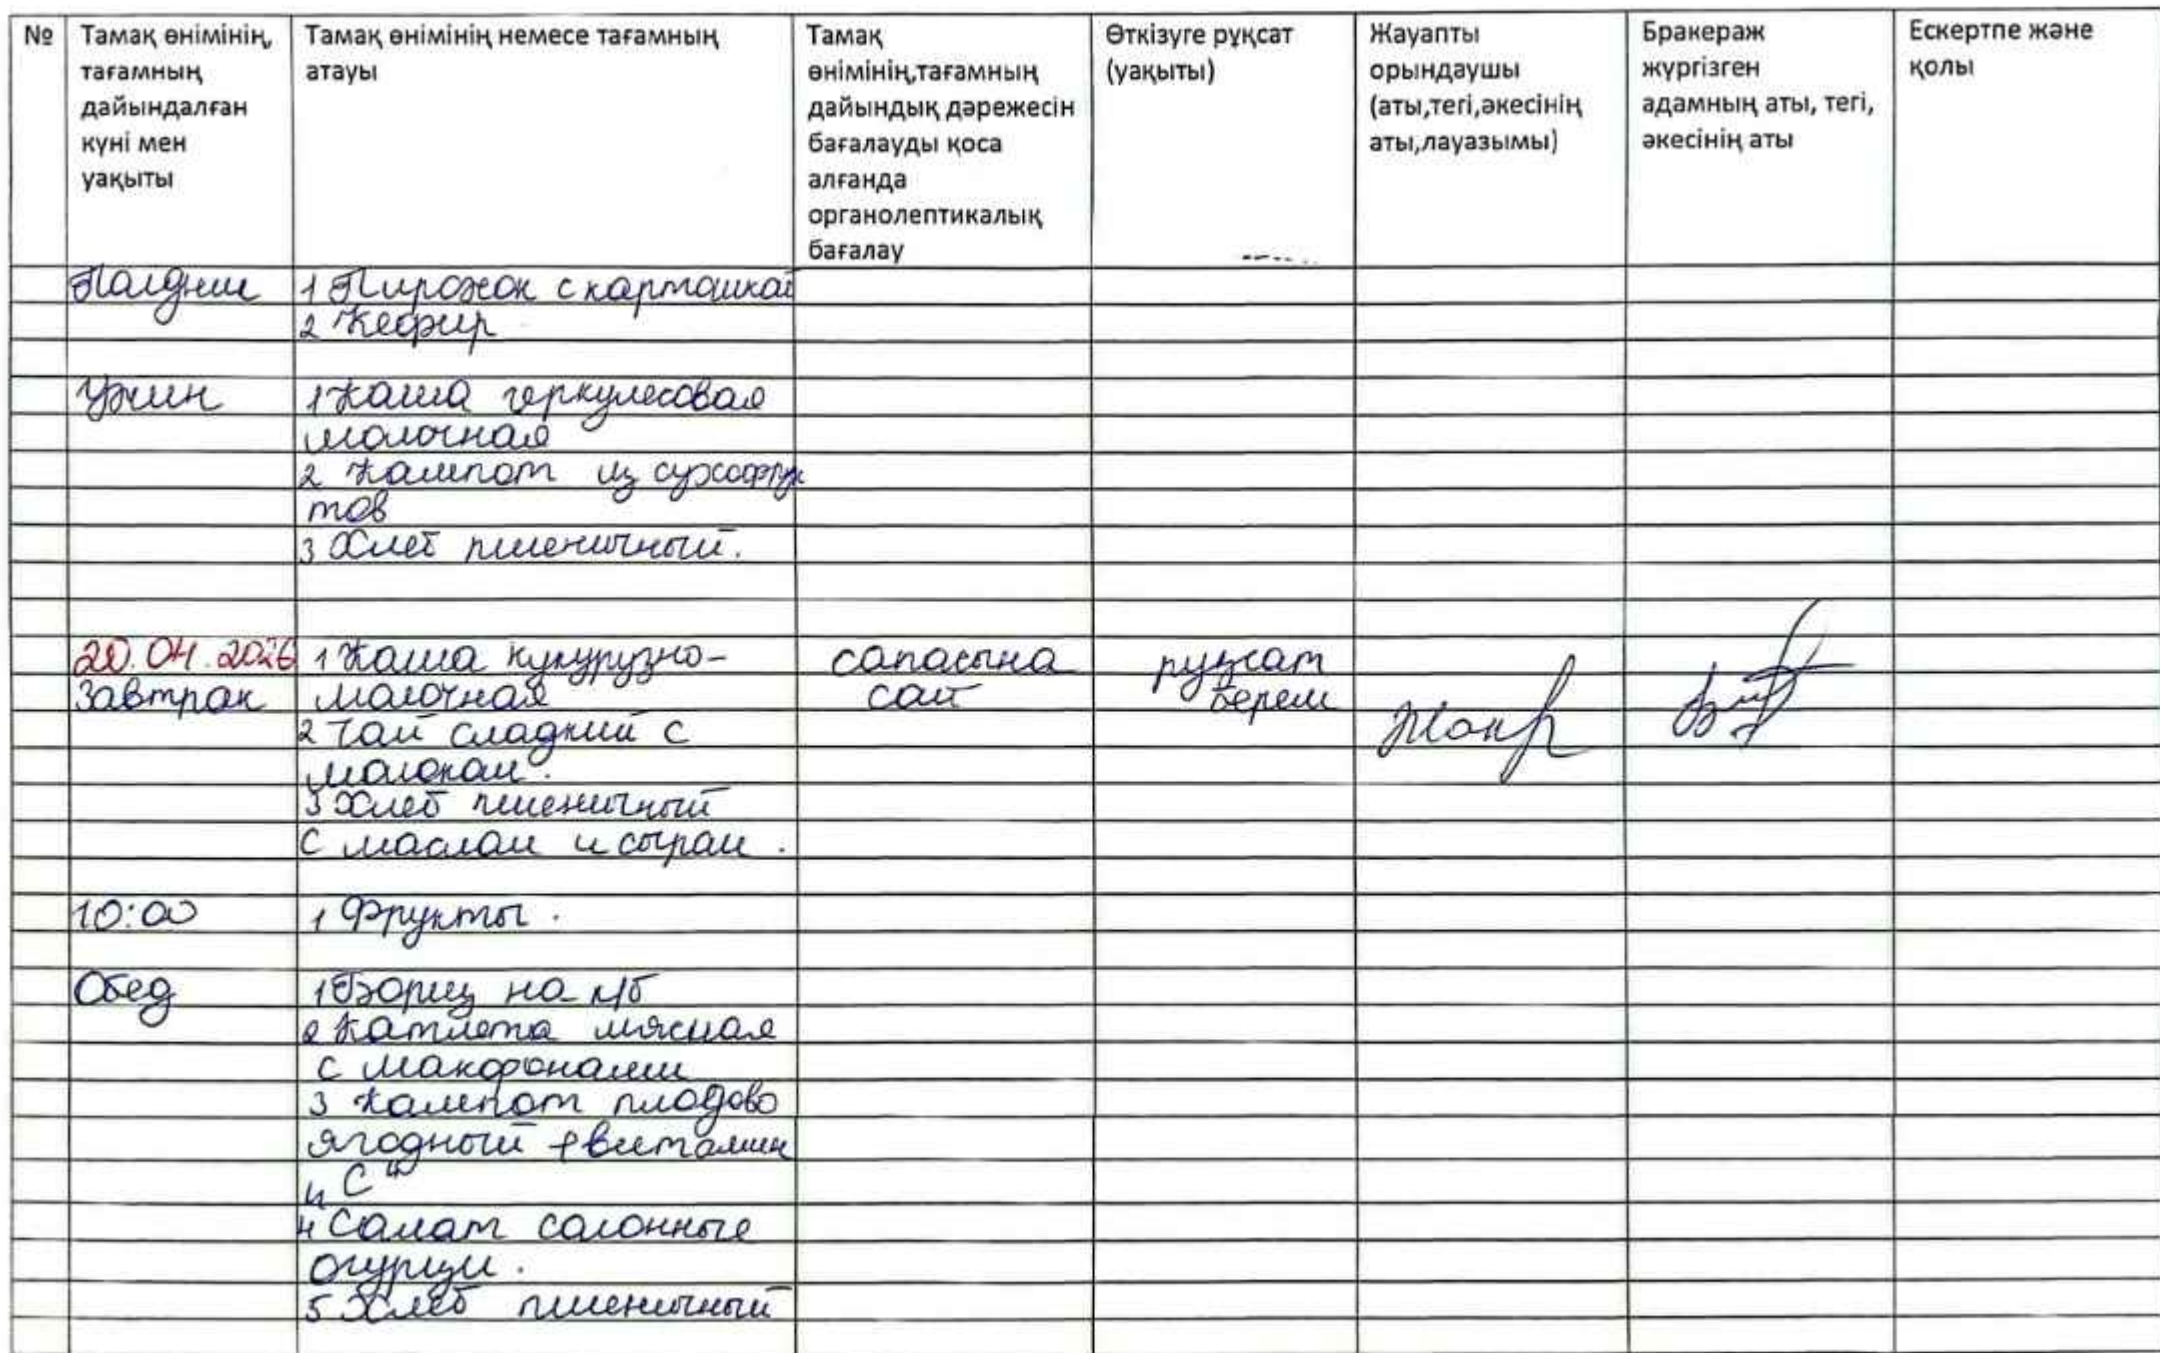 №
Тамақ өнімінің,
тағамның
дайындалған
күні мен
уақыты
Тамақ өнімінің немесе тағамның
атауы
Тамақ
өнімінің,тағамның
дайындық дәрежесін
бағалауды қоса
алғанда
органолептикалық
бағалау
Өткізуге рұқсат
(уақыты)
Жауапты
орындаушы
(аты,тегі,әкесінің
аты,лауазымы)
Бракераж
жүргізген
адамның аты, тегі,
әкесінің аты
Ескертпе және
қолы
Палдник 1 Пирожок с карташкай
2 Кефир
Ужин 1 Каша геркулесовая
малочная
2 Кампот из сухофрук
тов
3 Хлеб пшеничный.
20.04.2026 1 Каша кукурузно- сапасына рұқсат
Завтрак малочная сай берем
2 Чай сладкий с
малокам.
3 Хлеб пшеничный
с маслам и сырам.
10:00 1 Фрукты.
Обед 1 Борщ на к/б
2 Катлета мясная
с макоронами
3 Кампот плодово
ягодный +витамин
"С"
4 Салат солонные
огурцы.
5 Хлеб пшеничный